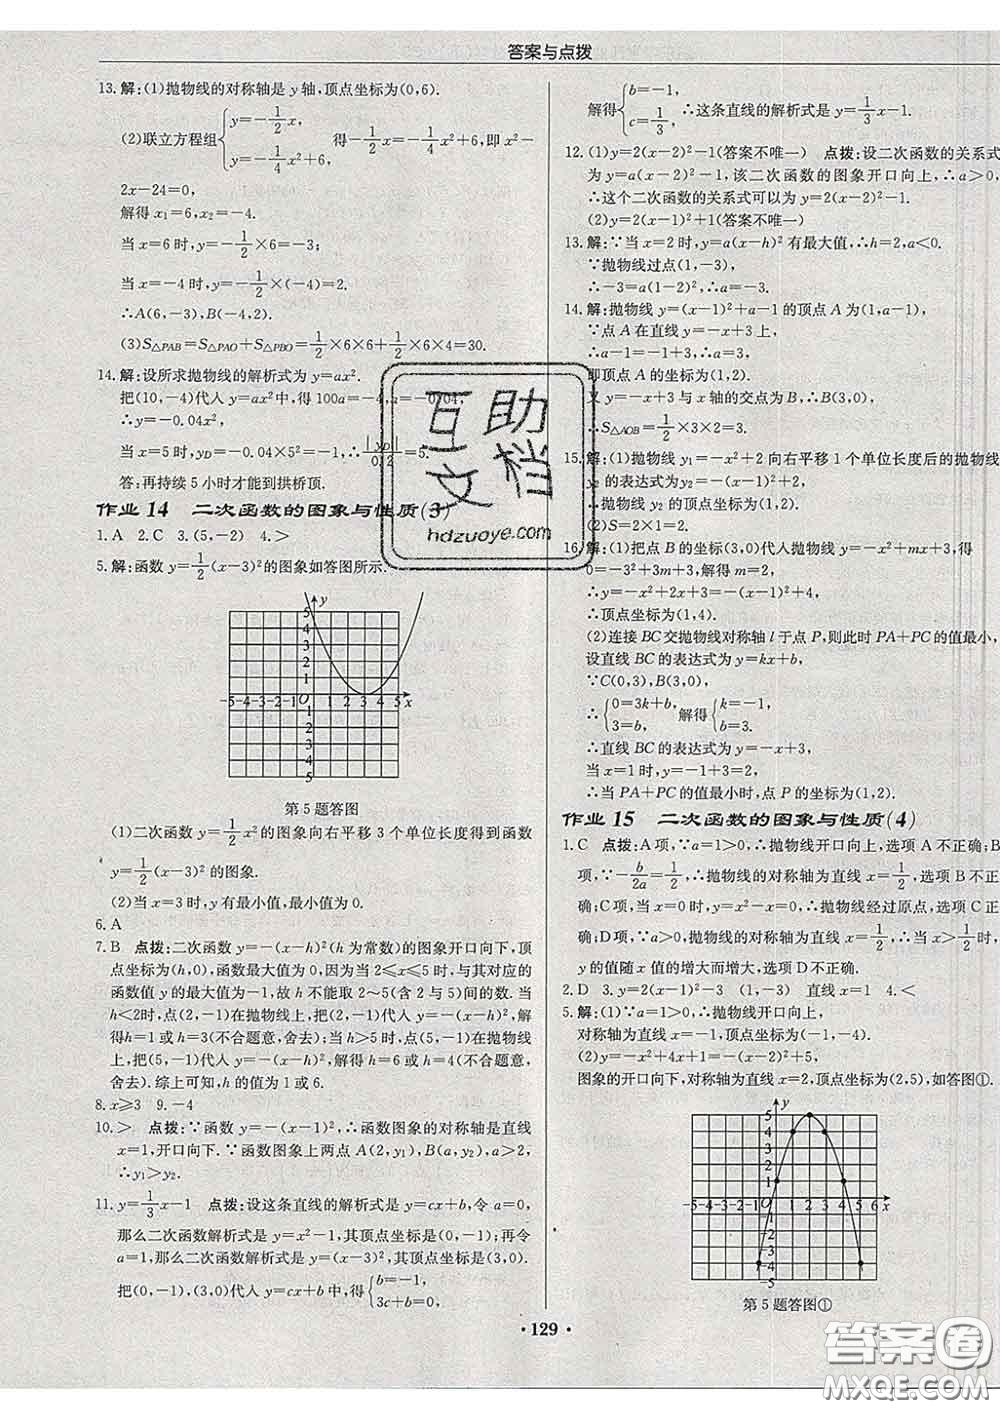 答案与点拨
13.解:(1)抛物线的对称轴是 y 轴,顶点坐标为(0,6).
(2)联立方程组{y=-1/2x, y=-1/4x²+6, 得-1/2x=-1/4x²+6,即 x²-
2x-24=0,
解得 x₁=6,x₂=-4.
当 x=6 时,y=-1/2×6=-3;
当 x=-4 时,y=-1/2×(-4)=2.
∴A(6,-3),B(-4,2).
(3)S△PAB=S△PAO+S△PBO=1/2×6×6+1/2×6×4=30.
14.解:设所求抛物线的解析式为 y=ax².
把(10,-4)代人 y=ax²中,得 100a=-4,a=-0.04,
∴y=-0.04x²,
当 x=5 时,y_D=-0.04×5²=-1,∴|y_D|/0.2=5.
答:再持续 5 小时才能到拱桥顶.
作业 14 二次函数的图象与性质(3)
1.A 2.C 3.(5,-2) 4.>
5.解:函数 y=1/2(x-3)²的图象如答图所示.
第 5 题答图
(1)二次函数 y=1/2x²的图象向右平移 3 个单位长度得到函数
y=1/2(x-3)²的图象.
(2)当 x=3 时,y 有最小值,最小值为 0.
6.A
7.B 点拨:二次函数 y=-(x-h)²(h 为常数)的图象开口向下,顶
点坐标为(h,0),函数最大值为 0,因为当 2≤x≤5 时,与其对应的
函数值 y 的最大值为-1,故 h 不能取 2~5(含 2 与 5)间的数. 当
h<2时,点(2,-1)在抛物线上,把(2,-1)代人 y=-(x-h)²,解
得h=1 或 h=3(不合题意,舍去);当 h>5 时,点(5,-1)在抛物线
上,把(5,-1)代人 y=-(x-h)²,解得 h=6 或 h=4(不合题意,
舍去).综上可知,h 的值为 1 或 6.
8.x≥3 9.-4
10.> 点拨:∵函数 y=-(x-1)²,∴函数图象的对称轴是直线
x=1,开口向下.∵函数图象上两点 A(2,y₁),B(a,y₂),a>2,
∴y₁>y₂.
11.y=1/3x-1 点拨:设这条直线的解析式是 y=cx+b,令 a=0,
那么二次函数解析式是 y=x²-1,其顶点坐标是(0,-1);再令
a=1,那么二次函数解析式是 y=(x-3)²,其顶点坐标是(3,0).
把(0,-1),(3,0)代人 y=cx+b 中,得{b=-1, 3c+b=0,
解得{b=-1, c=1/3, ∴这条直线的解析式是 y=1/3x-1.
12.(1)y=2(x-2)²-1(答案不唯一) 点拨:设二次函数的关系式
为 y=a(x-2)²-1,该二次函数的图象开口向上,∴a>0,
∴这个二次函数的关系式可以为 y=2(x-2)²-1.
(2)y=2(x-1)²+1(答案不唯一)
13.解:∵当 x=2 时,y=a(x-h)²有最大值,∴h=2,a<0.
∵抛物线过点(1,-3),
∴-3=a(1-2)²,∴a=-3.
14.解:抛物线 y=(x-1)²+a-1 的顶点 A 为(1,a-1),
∵点 A 在直线 y=-x+3 上,
∴a-1=-1+3,
即顶点 A 的坐标为(1,2).
又 y=-x+3 与 x 轴的交点为 B,∴B(3,0),
∴S△AOB=1/2×3×2=3.
15.解:(1)抛物线 y₁=-x²+2 向右平移 1 个单位长度后的抛物线
y₂ 的表达式为 y₂=-(x-1)²+2,
∴抛物线 y₂的顶点坐标为(1,2).
(2)S=2×1=2.
16.解:(1)把点 B 的坐标(3,0)代人抛物线 y=-x²+mx+3,得
0=-3²+3m+3,解得 m=2,
∴y=-x²+2x+3=-(x-1)²+4,
∴顶点坐标为(1,4).
(2)连接 BC交抛物线对称轴 l 于点 P,则此时 PA+PC的值最小,
设直线 BC 的表达式为 y=kx+b,
∵C(0,3),B(3,0),
∴{0=3k+b, 3=b, 解得{k=-1, b=3.
∴直线 BC 的表达式为 y=-x+3,
当 x=1 时,y=-1+3=2,
∴当 PA+PC 的值最小时,点 P 的坐标为(1,2).
作业 15 二次函数的图象与性质(4)
1.C 点拨:A 项,∵a=1>0,∴抛物线开口向上,选项 A 不正确;B
项,∵-b/2a=1/2,∴抛物线的对称轴为直线 x=1/2,选项 B 不正
确;C 项,当 x=0 时,y=x²-x=0,∴抛物线经过原点,选项 C 正
确;D 项,∵a>0,抛物线的对称轴为直线 x=1/2,∴当 x>1/2时,
y 的值随 x 值的增大而增大,选项 D不正确.
2.D 3.y=2(x-1)²-3 (1,-3) 直线 x=1 4.<
5.解:(1)∵a=1>0,∴抛物线开口向上,
对称轴为直线 x=-1,顶点坐标为(-1,-4).
(2)y=-x²+4x+1=-(x-2)²+5,
图象的开口向下,对称轴为直线 x=2,顶点坐标为(2,5),如答图①.
第 5 题答图①
· 129 ·
互助
文档
hdzuoye.com
答案圈
MXQE.COM